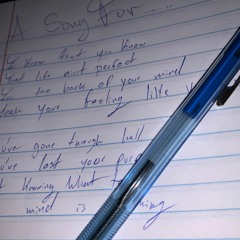 A Song For.....
You know that you know
That life ain't perfect
the back of your mind
Yeah your feeling like
You've gone through hell
You've lost your
knowing what
mind is